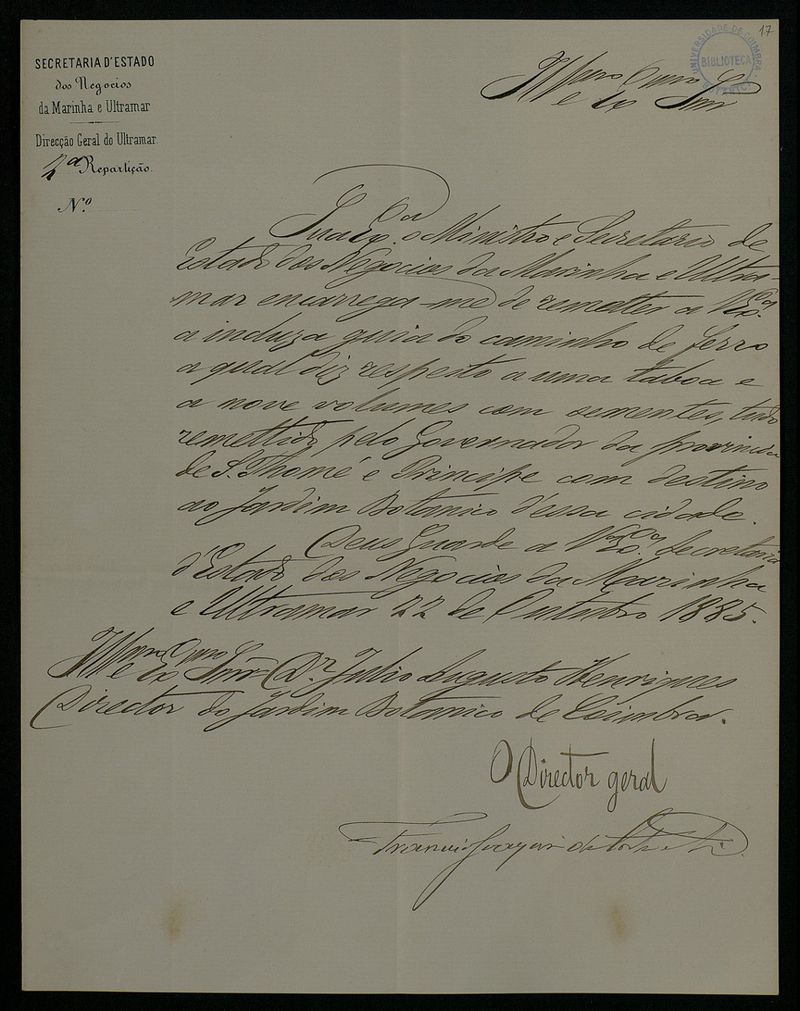 17
UNIVERSIDADE DE COIMBRA
BIBLIOTECA
SECRETARIA D'ESTADO
dos Negocios
da Marinha e Ultramar
Direcção Geral do Ultramar
2ª Repartição
N.º
Illmo e Exmo Snr
Sua Exª o Ministro e Secretario de
Estado dos Negocios da Marinha e Ultra-
mar encarrega-me de remetter a V. Exª
a incluza guia do caminho de ferro
a qual diz respeito a uma taboa e
a nove volumes com sementes, tudo
remettido pelo Governador da provincia
de S. Thomé e Principe com destino
ao Jardim Botanico d'essa cidade.
Deus Guarde a V. Exª Secretaria
d'Estado dos Negocios da Marinha
e Ultramar 22 de Outubro 1885.
Illmo e Exmo Snr Dr Julio Augusto Henriques
Director do Jardim Botanico de Coimbra.
O Director geral
Francisco Joaquim da Costa e Silva